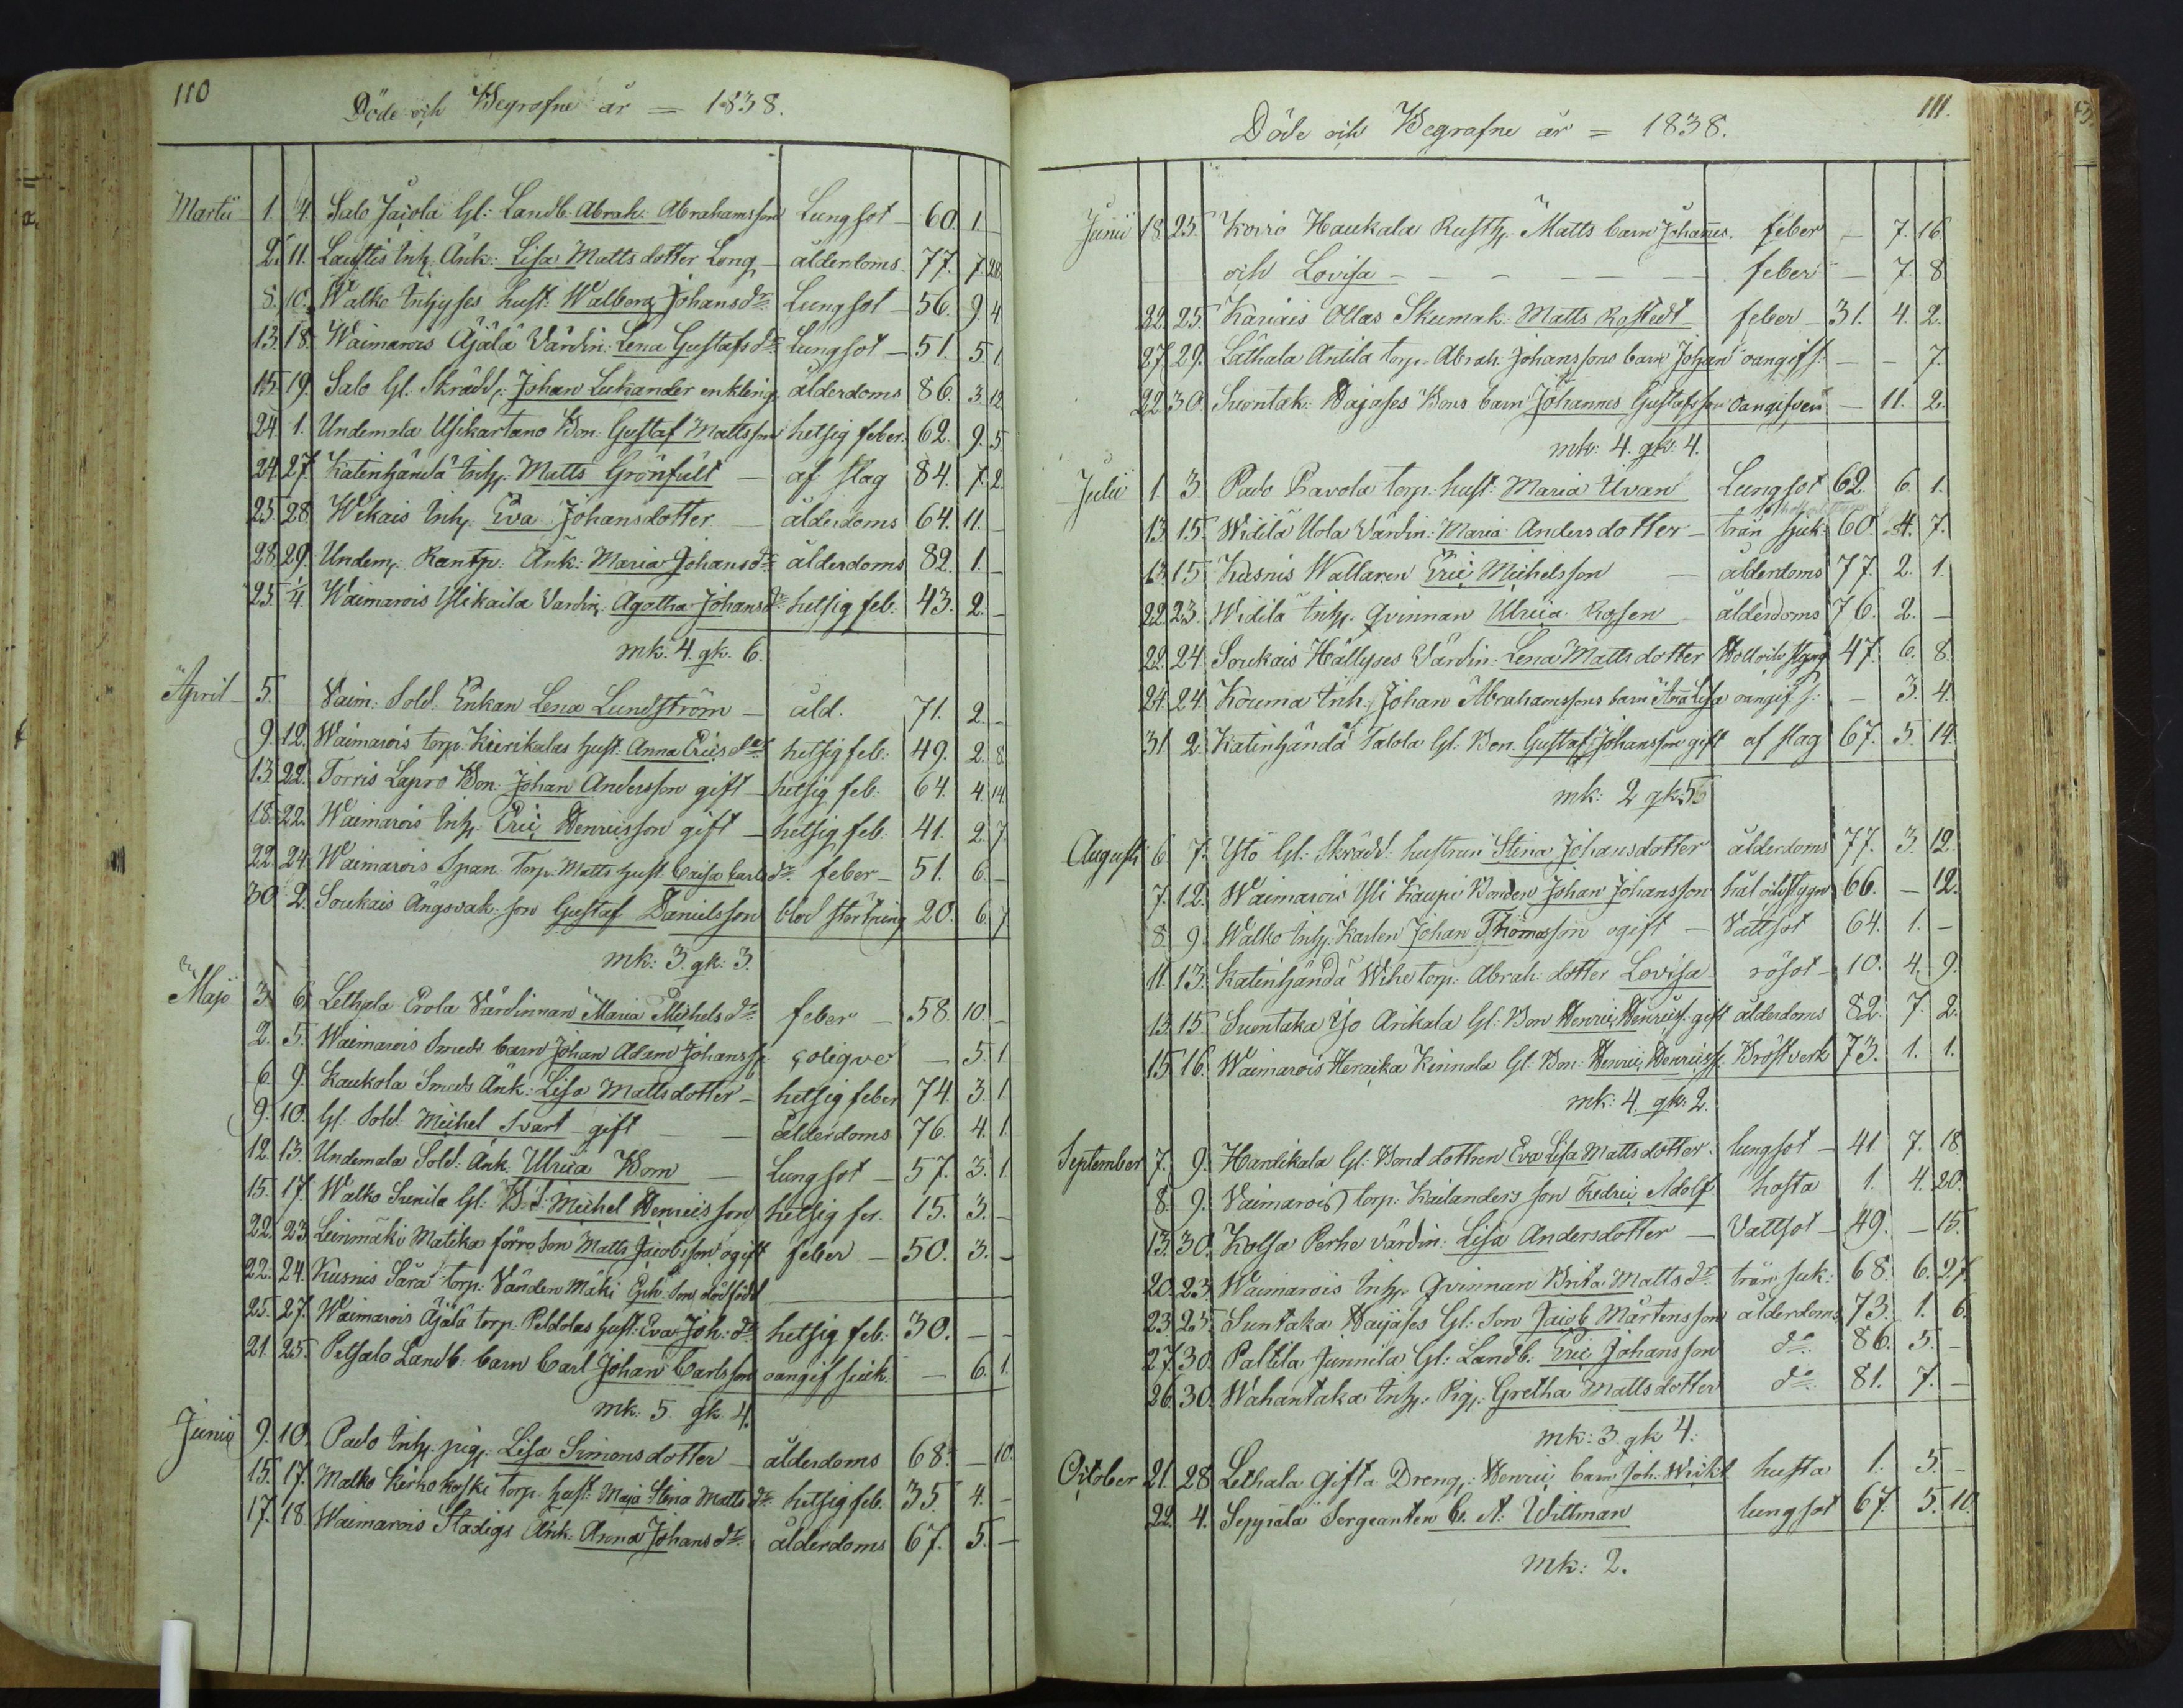 110
Döde och Begrafne år = 1838.
Martii 1. 4. Salo Jaiola Gl: Landb: Abrah: Abrahamsson Lungsot 60. 1. –
2. 11. Laustis Inh: Änk: Lisa Matts dotter Long – ålderdoms 77. 7. 28.
8. 10. Walko Inhyses hust: Walborg Johansdr Lungsot – 56. 9. 4
13. 18. Waimarois Äjälä Värdin: Lena Gustafs dr Lungsot – 51. 5 1.
15. 19. Salo Gl: Skrädd: Johan Lukander enkling ålderdoms 86. 3 12.
24. 1. Undemala Usikartano Bon: Gustaf Mattsson hetsig feber 62. 9. 5
24. 27. Katinhända Inh: Matts Grönfält – af slag 84. 7. 2.
25. 28. Wekais Inh: Eva Johansdotter – ålderdoms 64. 11. –
28. 29. Undem: Rantp: Änk: Maria Johansdr ålderdoms 82. 1. –
25. 1/4. Waimarois Ylikaila Vardin: Agatha Johans dr hetsig feb: 43. 2. –
mk. 4. qk. 6.
April – 5. Vaim: Sold: Enkan Lena Lundström – åld. 71. 2. –
9. 12. Waimarois torp: Kierikalas hust: Anna Erics dr hetsig feb: 49. 2. 8
13. 22. Torris Lapro Bon: Johan Andersson gift – hetsig feb: 64. 4. 14
18. 22. Waimarois Inh: Eric Henricsson gift – hetsig feb: 41. 2. 7
22. 24. Waimarois Span: Torp: Matts hust: Caisa Carls dr feber – 51. 6. –
30. 2. Soukais Ängsvak: son Gustaf Danielsson blod störtning 20. 6 7
mk: 3. qk: 3.
Maji 3. 6. Lethala Erola Värdinnan Maria Michels dr feber – 58. 10. –
2. 5. Waimarois Smeds barn Johan Adam Johanss: coliqve – 5. 1.
6. 9. Kaukola Smeds Änk: Lisa Mattsdotter – hetsig feber 74. 3. 1
9. 10. Gl: Sold: Michel Svart – gift – ålderdoms 76. 4. 1.
12. 13. Undemala Sold: Änk: Ulrica Worn – Lungsot – 57. 3. 1
15. 17. Walko Sunila Gl: Michel Henricsson hetsig fer. 15. 3. –
22. 23. Leinmäki Matika förre Son Matts Jacobsson ogift feber – 50. 3. –
22. 24. Kusnis Sära torp: Vänden Mäki Eph: Son dödfödd
25. 27. Waimarois Äjälä torp: Peldolas hust: Eva Joh: dr hetsig feb: 30. – –
21. 25. Petsalo Landb: barn Carl Johan Carlsson oangif siuk. – 6. 1.
mk: 5. qk 4.
Junii 9. 10. Pado Inh: pig: Lisa Simonsdotter – ålderdoms 68. – 10.
15. 17. Malko Kirkokoski torp: hust: Maja Stina Matts dr hetsig feb. 35. 4. –
17. 18. Waimarois Stadigs Änk: Anna Johans dr ålderdoms 67. 5. –
111.
Döde och Begrafne år = 1838.
Junii 18. 25. Koiro Haukala Rusth: Matts barn Johannes. feber – 7. 16
och Lovisa – – – – – – feber – 7. 8
22. 25. Kariais Ollas Skumak: Matts Rostedt feber – 31. 4. 2.
27. 29. Lathala Antila torp: Abrah: Johanssons barn Johan oangif s: – – 7.
22. 30. Suontak: Wajases Bons barn Johannes Gustafsson Oangifven – 11. 2.
mk: 4. qk: 4.
Julii 1. 3. Pado Pavola torp: hust: Maria Uvan Lungsot 62. 6. 1.
13. 15. Widilä Uola Värdin: Maria Andersdotter – trån sjuk 60. 4. 7.
13. 15. Kusnis Wallaren Eric Michelsson – ålderdoms 77. 2. 1.
22. 23. Widilä Inh: Qvinnan Ulrica Rosen ålderdoms 76. 2. –
22. 24. Soukais Hällyses Värdin: Lena Mattsdotter Håll och styng 47. 6. 8.
24. 24. Kouma Inh: Johan Abrahamssons barn Anna Lisa oangif s: – 3. 4.
31. 2. Katinhända Talola Gl: Bon: Gustaf Johansson gift af slag 67. 5. 14.
mk: 2 qk: 5
Augusti 6. 7. Ytö Gl: Skrädd: hustrun Stina Johansdotter ålderdoms 77. 3. 12.
7. 12. Waimarois Yli Kaupi Bonden Johan Johansson hål och stygn 66. – 12.
8. 9. Walko Inh: Karlen Johan Thomasson ogift – Vattsot 64. 1. –
11. 13. Katinhändä Wihe torp: Abrah: dotter Lovisa rösot – 10. 4. 9.
13. 15. Suontaka Yo Arikala Gl: Bon Henric Henricss: gift ålderdoms 82. 7. 2.
15. 16. Waimarois Heraika Kinnala Gl: Bon: Henric Henricss: Bröstverk 73. 1. 1.
mk: 4. qk: 2.
September 7. 9. Hardikala Gl: Bond dottren Eva Lisa Mattsdotter. lungsot – 41 7. 18
8. 9. Vaimarois torp: Kailanders son Fredric Adolf hosta 1. 4. 20.
13. 30. Kolsa Perhe värdin: Lisa Andersdotter – Vattsot – 49. – 15.
20. 23. Waimarois Inh: Qvinnan Brita Matts dr trån siuk: 68. 6. 27.
23. 25. Suntaka Wajases Gl: Son Jacob Mårtensson ålderdoms 73. 1. 6.
27. 30. Paltila Junnila Gl: Landb: Eric Johansson do 86. 5. –
26. 30. Wahantaka Inh: Pig: Gretha Mattsdotter do 81. 7. –
mk: 3. qk 4:
October 21. 28. Lethala Gifta Dreng: Henric barn Joh: Wickt husta 1. 5. –
22. 4. Seppälä Sergeanten C. A: Wittman lungsot 67. 5. 10.
mk: 2.